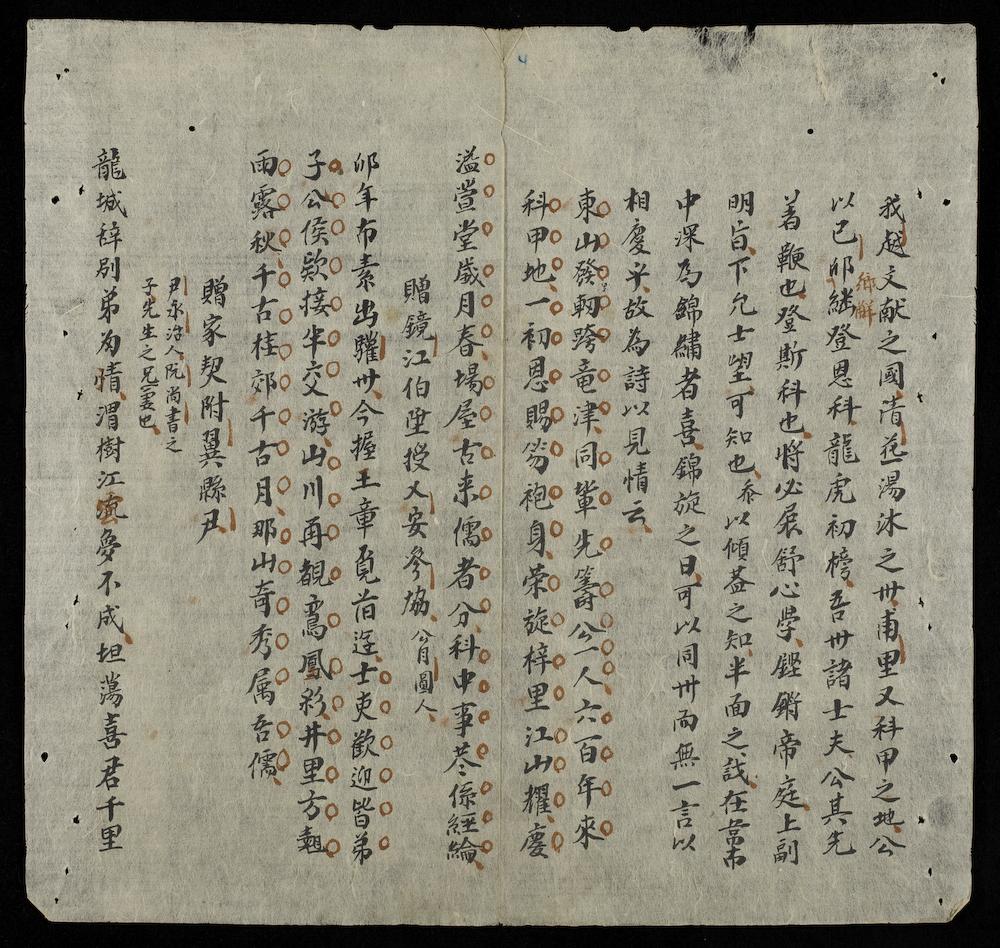 我越文献之國清花湯沐之卅甫里又科甲之地公
以己卯鄉解継登恩科龍虎初榜吾卅諸士夫公其先
著鞭也登斯科也將必展舒心學鏗鏘帝庭上副
明旨下允士望可知也忝以傾蓋之知半面之識在
中深為錦繡者喜錦旋之日可以同卅而無一言以
相慶乎故為詩以見情云
東山發軔跨竜津同輩先籌公一人六百年來
科甲地一初恩賜笏袍身榮旋梓里江山耀慶
溢萱堂歲月春場屋古来儒者分科中事葢係經綸
贈鏡江伯陞授乂安參協公月圓人
卯年布素出驩卅今握王章旬士吏歡迎皆弟
子公侯欵接半交游山川再覩鸞鳳彩井里方
雨露秋千古桂郊千古月那山奇秀属吾儒
贈家契附翼縣尹
尹永治人阮尚書之
子先生之兄也
龍城辞别弟為情渭樹江雲夢不成坦蕩喜君千里